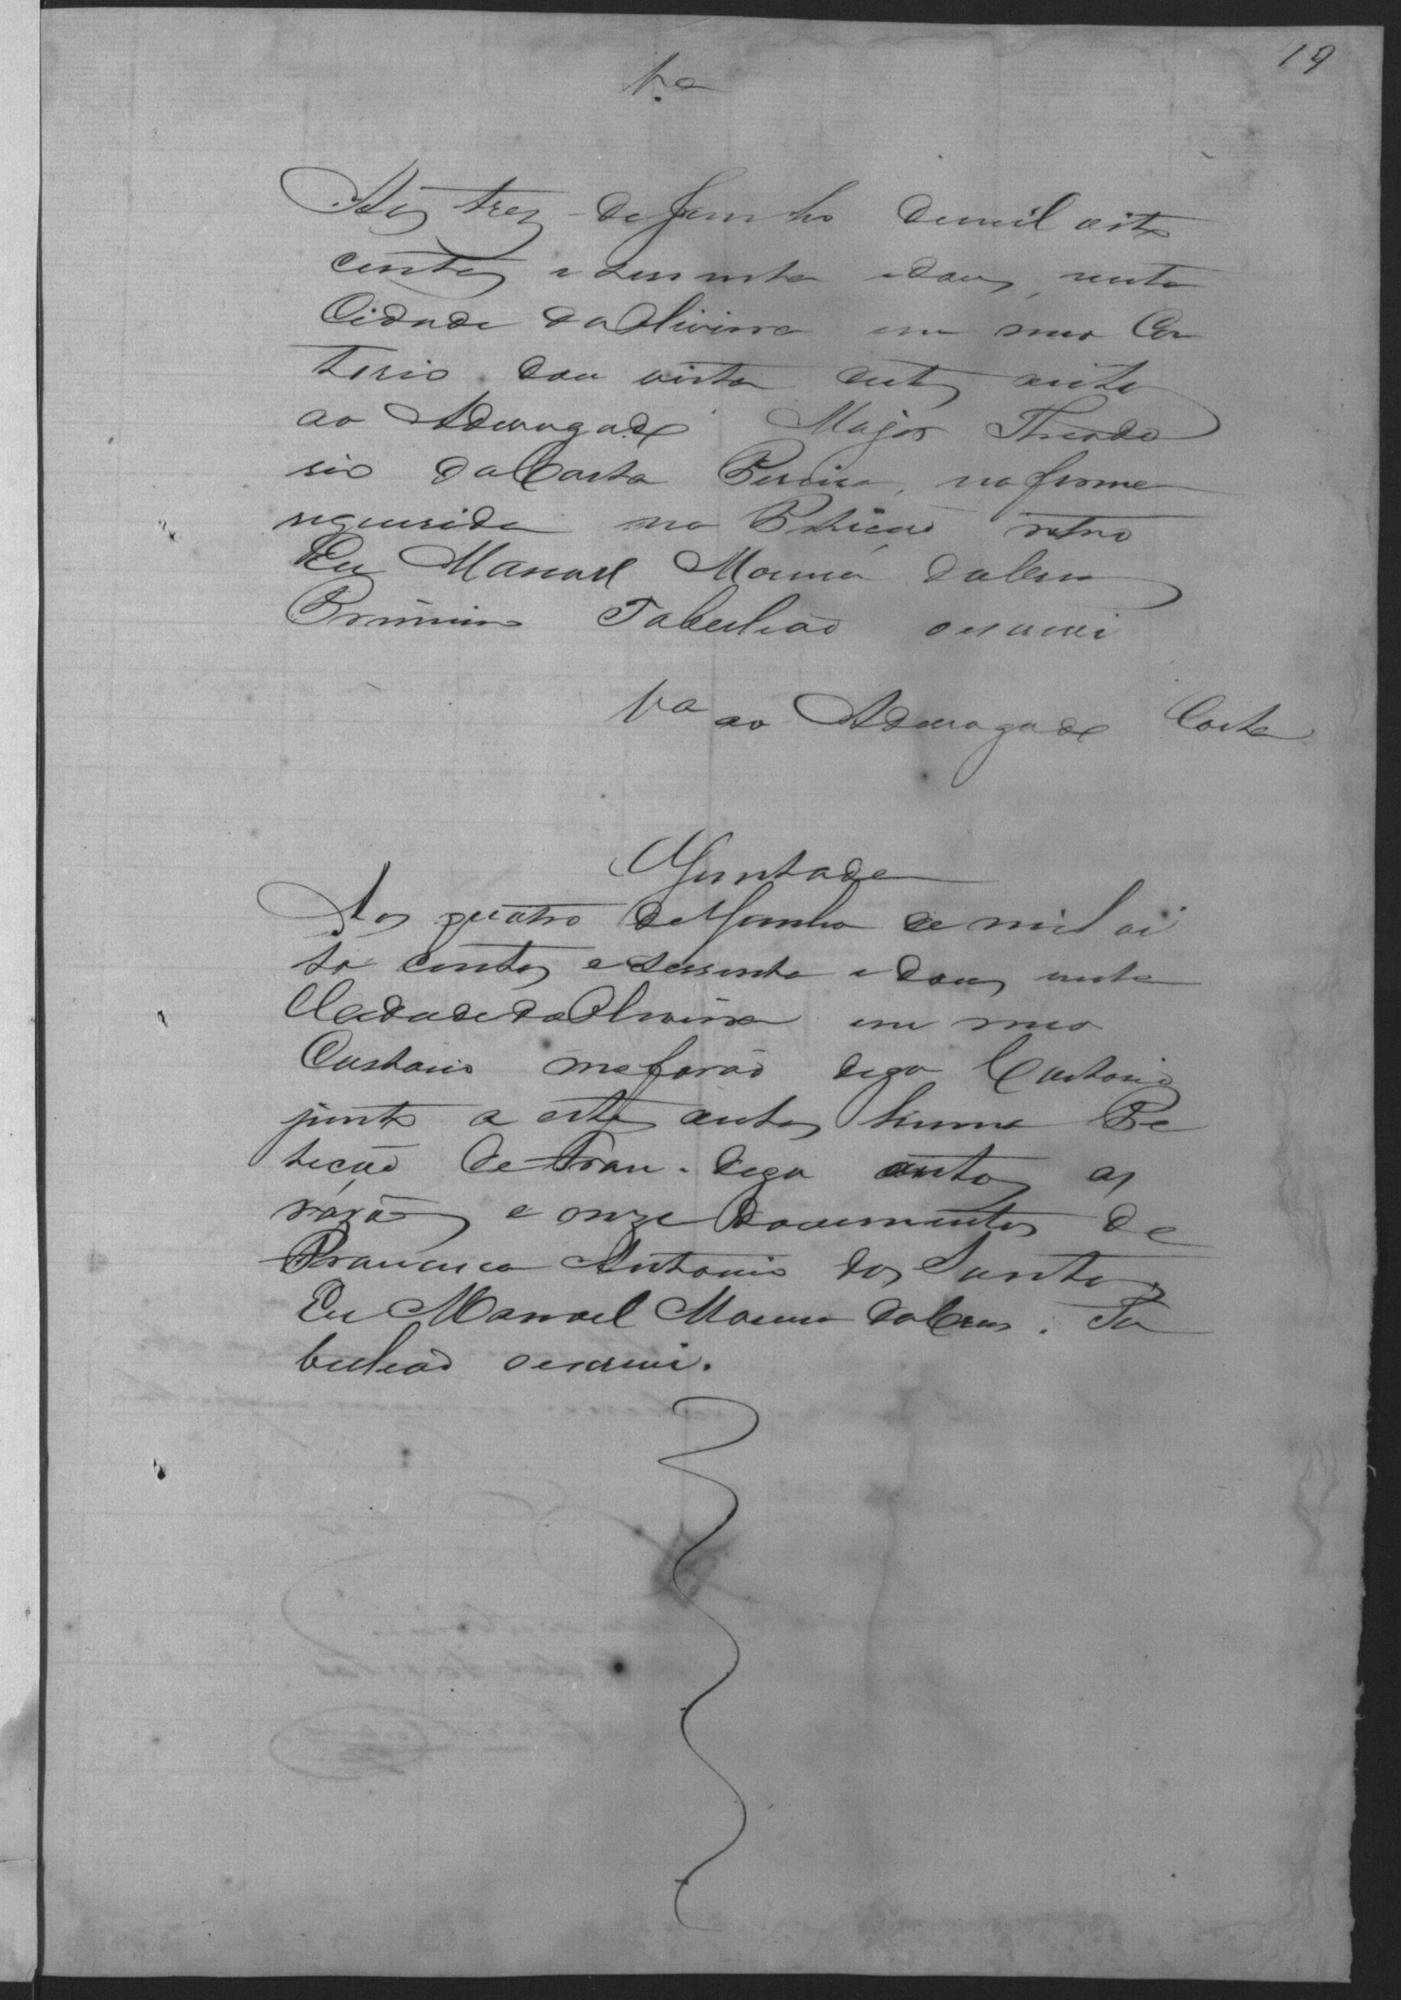 19
V.a
Aos tres de Junho de mil oito
centos e secenta e dous, nesta
Cidade da Oliveira em meo Car
torio dou vista destes autos
ao Advogado Major Theodo
sio da Costa Pereira, na forma
requerida na Petição retro
Eu Manoel Moura da Cruz
Primeiro Tabelião o escrevi
Va ao Advogado Costa
Juntada
Aos quatro de Junho de mil oi
to centos e secenta e dous nesta
Cidade da Oliveira em meo
Cartorio me forão digo Cartorio
junto a estes autos huma Pe
tição de Fran. digo autos as
razões e onze documentos de
Francisco Antonio dos Santos
Eu Manoel Moura da Cruz. Ta
belião o escrevi.